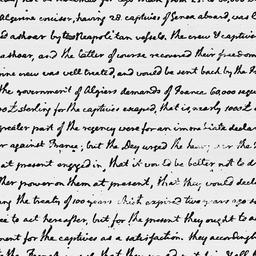 Algerine cruiser, having 28. captives of Genoa aboard, was
ashoar by two Neapolitan vessels. the crew & captives
ashoar, and the latter of course recovered their freedom
crew was well treated, and would be sent back by the
the government of Algiers demands of France 60,000 sequins
sterling for the captives escaped, that is nearly 1000£
greater part of the regency were for an immediate
war against France; but the Dey urged the heavy war the
at present engaged in, that it would be better not to
power on them at present, that they would
the treaty of 100 years which expired two years ago
to act hereafter, but for the present they ought to
for the captives as a satisfaction. they accordingly